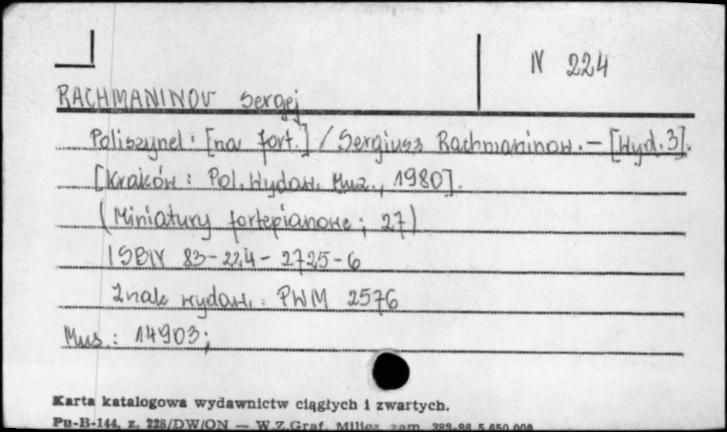 N 224
RACHMANINOV Sergej
Poliszynel : [na fort.] / Sergiusz Rachmaninow. — [Wyd. 3].
[Kraków : Pol. Wydaw. Muz., 1980].
(Miniatury fortepianowe ; 27)
ISBN 83-224-2725-6
Znak wydaw. : PWM 2576
Mus. : 14903;
Karta katalogowa wydawnictw ciągłych i zwartych.
Pu-B-144, z. 228/DW/ON — W.Z.Graf. Milicz, zam.